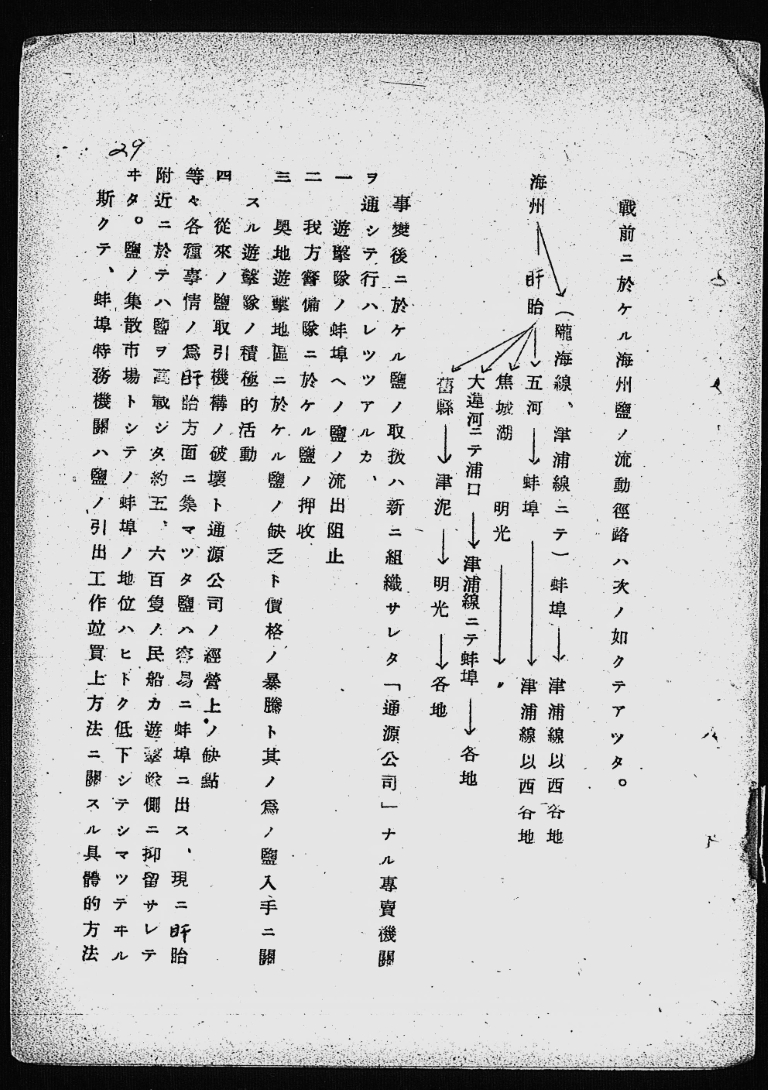 戰前ニ於ケル海州鹽ノ流動徑路ハ次ノ如クテアツタ。
海州
(隴海線、津浦線ニテ)蚌埠→津浦線以西各地
盱眙
五河→蚌埠→津浦線以西各地
焦城湖 明光→〃
大違河ニテ浦口→津浦線ニテ蚌埠→各地
舊縣→津泥→明光→各地
事變後ニ於ケル鹽ノ取扱ハ新ニ組織サレタ「通源公司」ナル專賣機關
ヲ通シテ行ハレツツアルカ、
一 遊擊隊ノ蚌埠ヘノ鹽ノ流出阻止
二 我方警備隊ニ於ケル鹽ノ押收
三 奧地遊擊地區ニ於ケル鹽ノ缺乏ト價格ノ暴騰ト其ノ爲ノ鹽入手ニ關
スル遊擊隊ノ積極的活動
四 從來ノ鹽取引機構ノ破壞ト通源公司ノ經營上ノ缺點
等々各種事情ノ爲盱眙方面ニ集マツタ鹽ハ容易ニ蚌埠ニ出ス、現ニ盱眙
附近ニ於テハ鹽ヲ滿載シタ約五、六百隻ノ民船カ遊擊隊側ニ抑留サレテ
ヰタ。鹽ノ集散市場トシテノ蚌埠ノ地位ハヒドク低下シテシマツテヰル
斯クテ、蚌埠特務機關ハ鹽ノ引出工作竝買上方法ニ關スル具體的方法
29